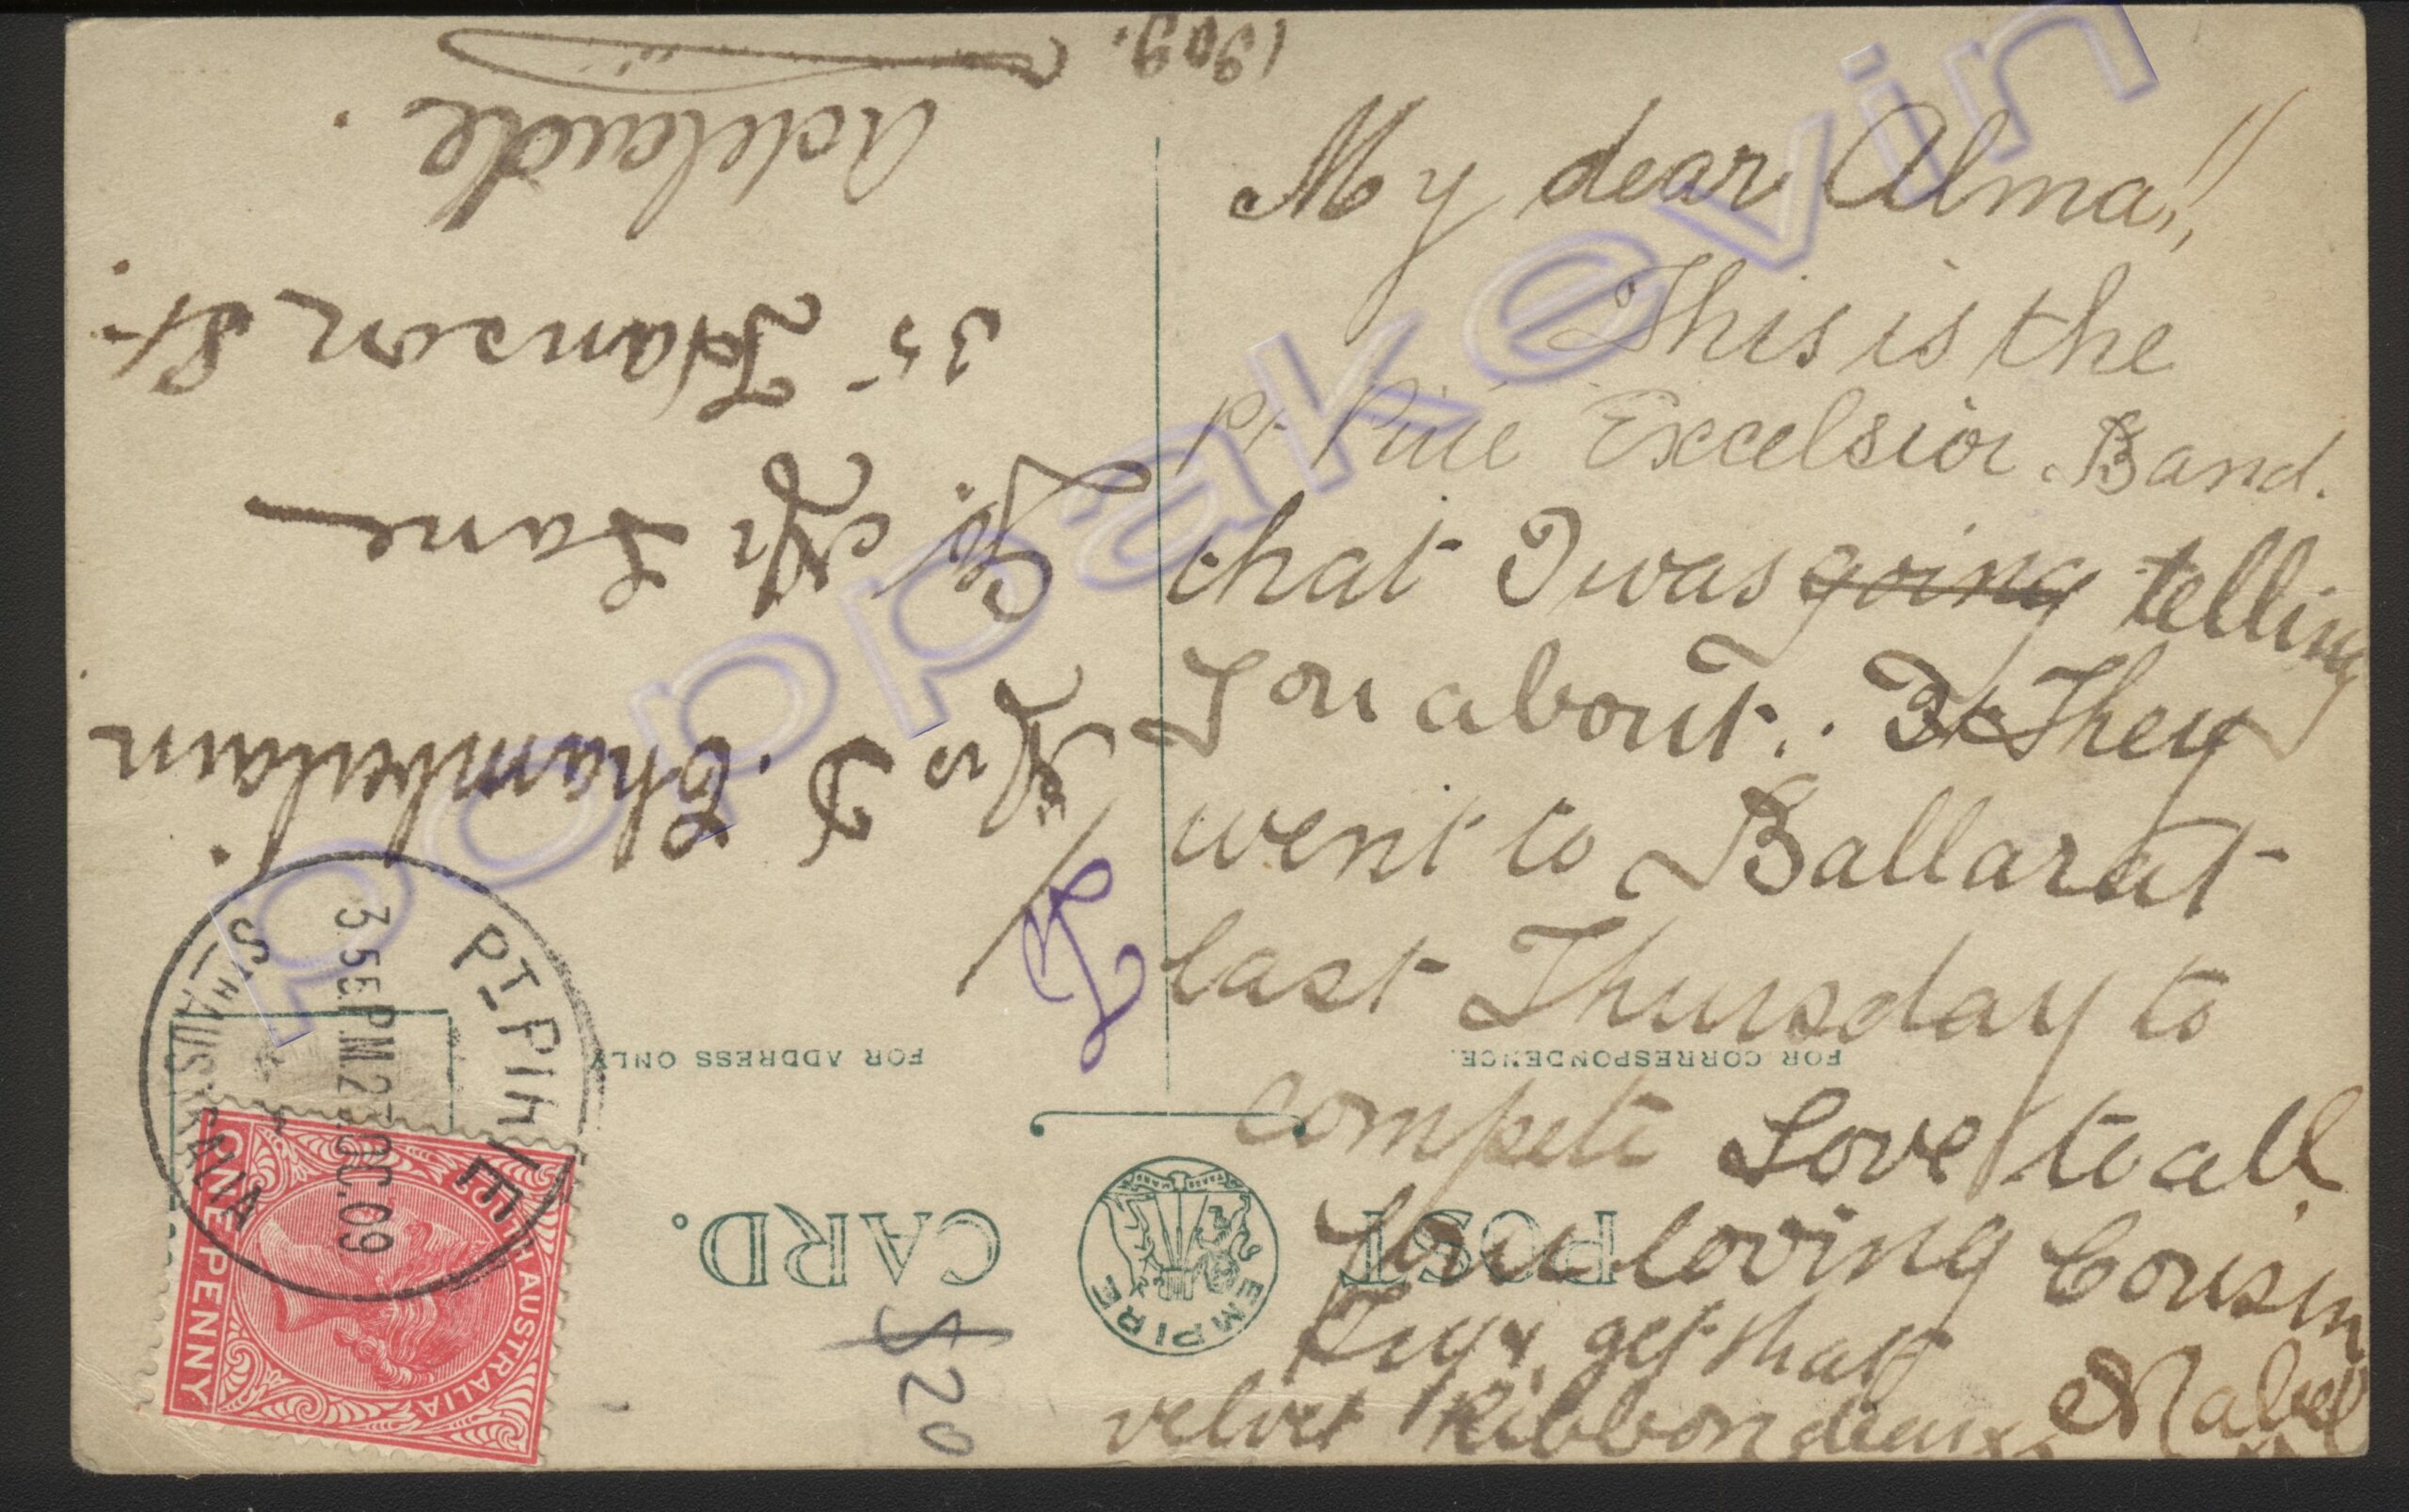 My dear Alma!!
This is the
Pt Pirie Excelsior Band.
that I was going telling
You about. They
went to Ballarat
last Thursday to
compete Love to all
Your loving Cousin
Try & get that Mabel
velvet Ribbon dear xx
1909.
Mrs J. Chamberlain
C/o. Mr Lane
35 Hanson St.
Adelaide.
POST CARD.
EMPIRE
FOR CORRESPONDENCE.
FOR ADDRESS ONLY
PT PIRIE
3.5 PM. 27 OC. 09
STH AUSTRALIA
STH AUSTRALIA
ONE PENNY
$20
poppakevin